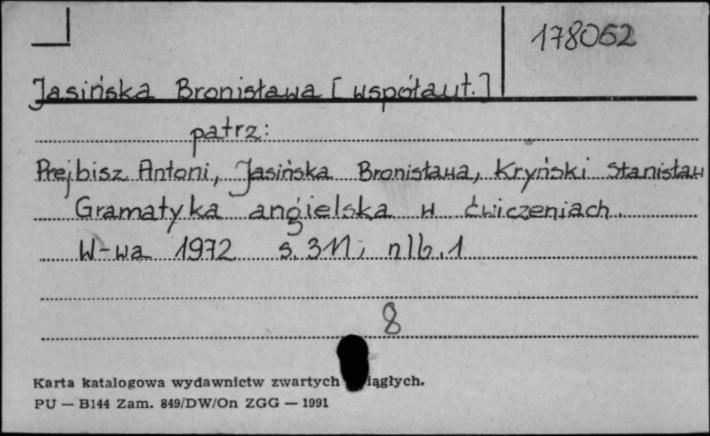 178052
Jasińska Bronisława [współaut.]
patrz:
Prejbisz Antoni, Jasińska Bronisława, Kryński Stanisław
Gramatyka angielska w ćwiczeniach.
W-wa 1972 s. 311, nlb. 1
8
Karta katalogowa wydawnictw zwartych iągłych.
PU — B144 Zam. 849/DW/On ZGG — 1991